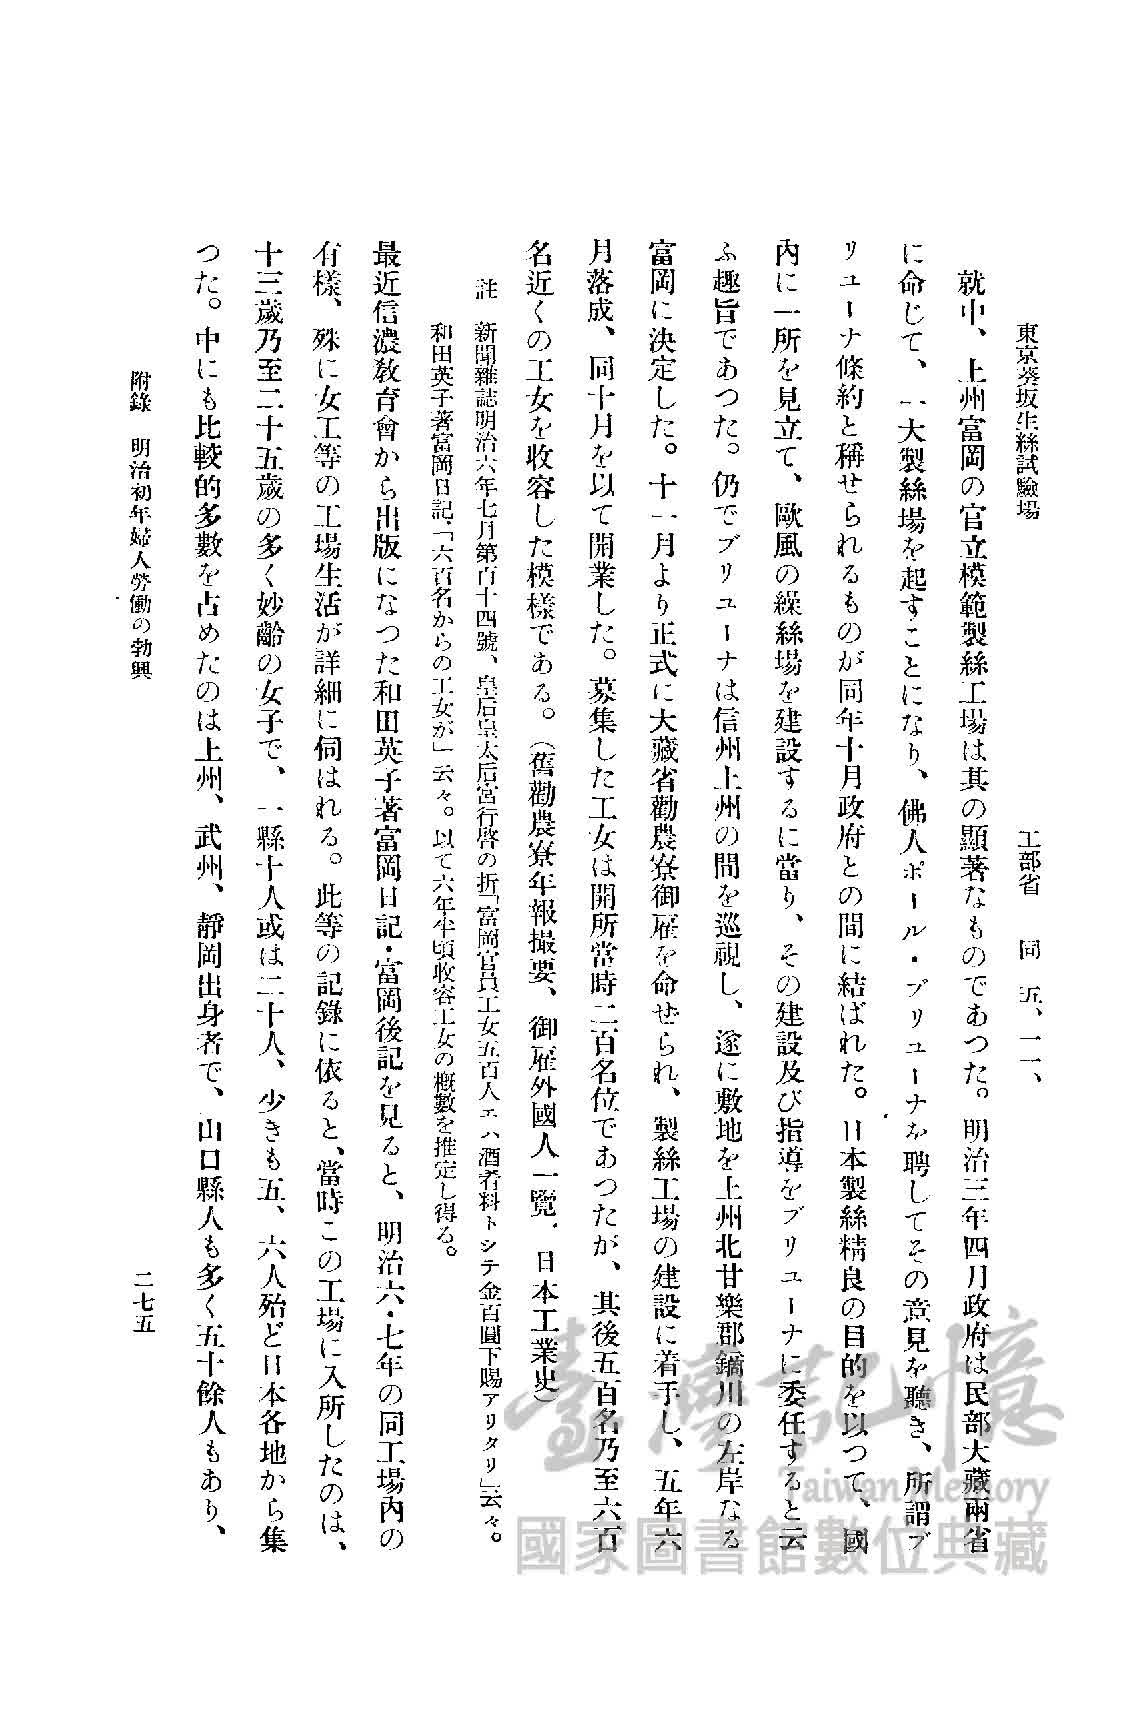 東京葵坂生絲試驗場　工部省　同　五、一一、
就中、上州富岡の官立模範製絲工場は其の顯著なものであつた。明治三年四月政府は民部大藏兩省
に命じて、一大製絲場を起すことになり、佛人ポール・ブリューナを聘してその意見を聽き、所謂ブ
リューナ條約と稱せられるものが同年十月政府との間に結ばれた。日本製絲精良の目的を以つて、國
內に一所を見立て、歐風の繰絲場を建設するに當り、その建設及び指導をブリューナに委任すると云
ふ趣旨であつた。仍でブリューナは信州上州の間を巡視し、遂に敷地を上州北甘樂郡鏑川の左岸なる
富岡に決定した。十一月より正式に大藏省勸農寮御雇を命せられ、製絲工場の建設に着手し、五年六
月落成、同十月を以て開業した。募集した工女は開所當時二百名位であつたが、其後五百名乃至六百
名近くの工女を收容した模樣である。（舊勸農寮年報撮要、御雇外國人一覽、日本工業史）
註　新聞雜誌明治六年七月第百十四號、皇后皇太后宮行啓の折「富岡官員工女五百人エハ酒肴料トシテ金百圓下賜アリタリ」云々。
和田英子著富岡日記、「六百名からの工女が」云々。以て六年半頃收容工女の概數を推定し得る。
最近信濃敎育會から出版になつた和田英子著富岡日記・富岡後記を見ると、明治六・七年の同工場內の
有樣、殊に女工等の工場生活が詳細に伺はれる。此等の記錄に依ると、當時この工場に入所したのは、
十三歲乃至二十五歲の多く妙齡の女子で、一縣十人或は二十人、少きも五、六人殆ど日本各地から集
つた。中にも比較的多數を占めたのは上州、武州、靜岡出身者で、山口縣人も多く五十餘人もあり、
附錄　明治初年婦人勞働の勃興　二七五
臺灣記憶
Taiwan Memory
國家圖書館數位典藏